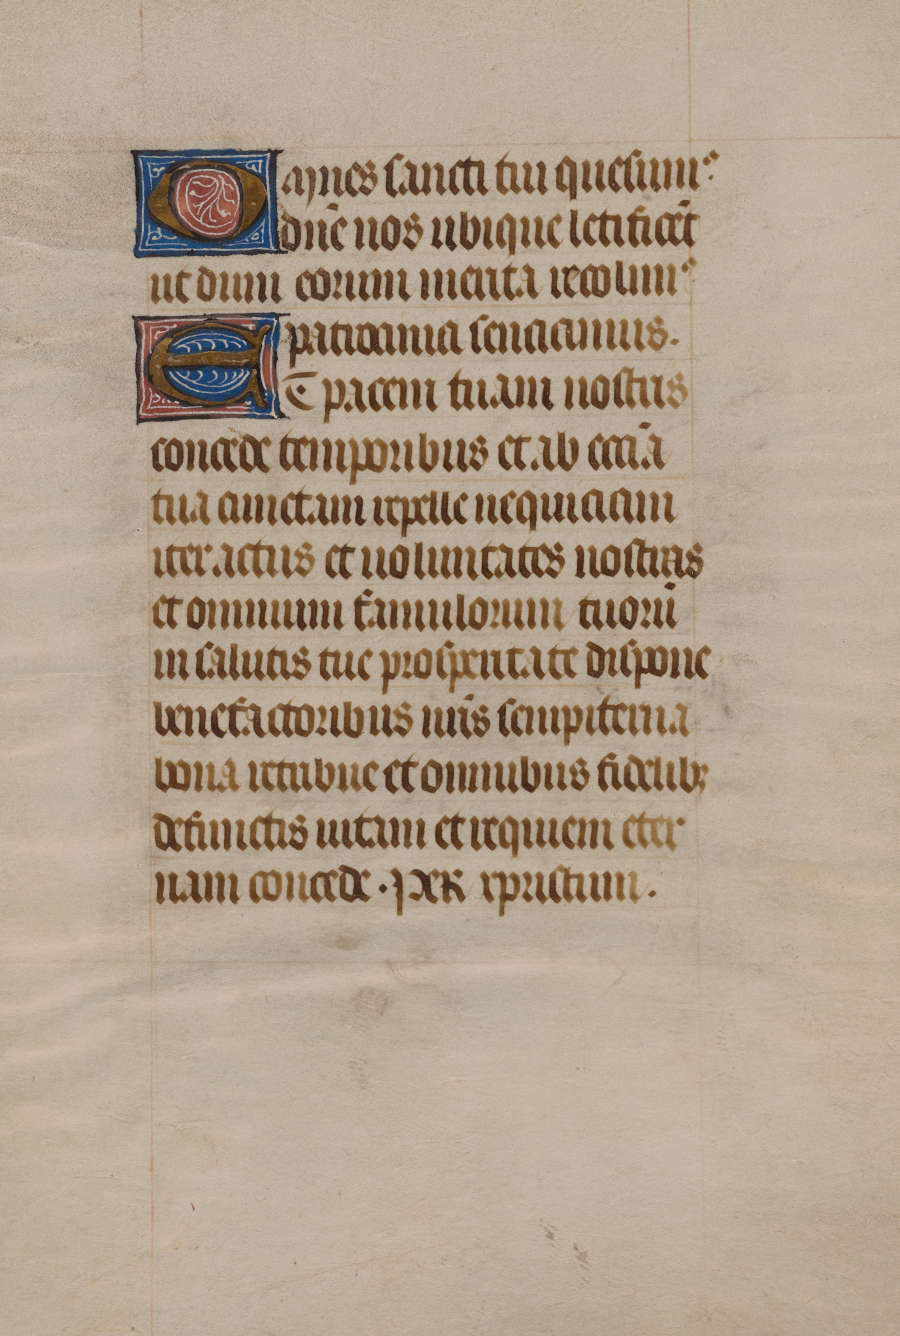 Omnes sancti tui quesumꝰ
dn̄e nos ubique letificēt
ut dum eorum merita recolimꝰ
patrocinia senciamus.
Et pacem tuam nostris
concede temporibus et ab ecc̄ia
tua cunctam repelle nequiciam
iter actus et uoluntates nostras
et omnium famulorum tuorū
in salutis tue prosperitate dispone
benefactoribus nr̄is sempiterna
bona retribue et omnibus fidelibꝫ
defunctis uitam et requiem eter
nam concede · PER xpristum .